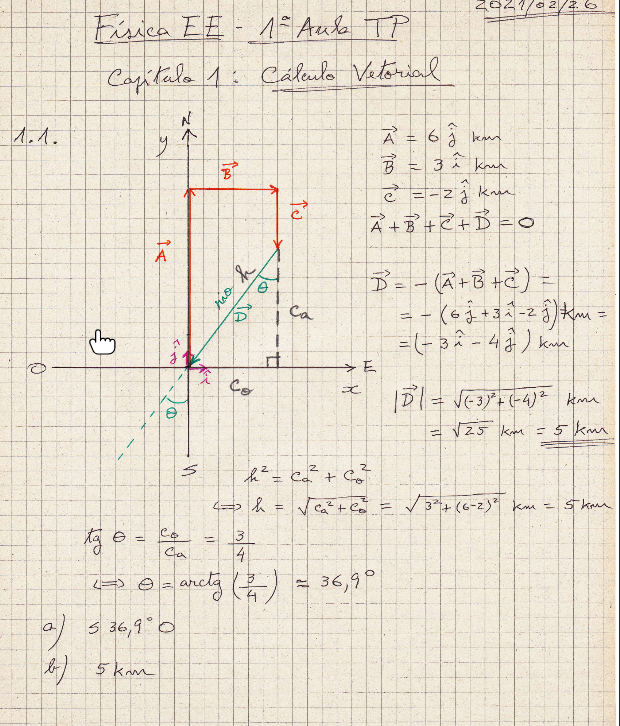 2021/02/26
Física EE - 1ª Aula TP
Capítulo 1: Cálculo Vetorial
1.1.
N
y
B⃗
C⃗
A⃗
h
rio
D⃗
θ
Ca
ĵ
î
O
E
x
Co
θ
S
A⃗ = 6 ĵ km
B⃗ = 3 î km
C⃗ = -2 ĵ km
A⃗ + B⃗ + C⃗ + D⃗ = 0
D⃗ = - (A⃗ + B⃗ + C⃗) =
= - (6 ĵ + 3 î - 2 ĵ) km =
= (-3 î - 4 ĵ) km
|D⃗| = √((-3)² + (-4)²) km
= √25 km = 5 km
h² = Ca² + Co²
⟺ h = √(Ca² + Co²) = √(3² + (6-2)²) km = 5 km
tg θ = Co/Ca = 3/4
⟺ θ = arctg (3/4) ≈ 36,9°
a) S 36,9° O
b) 5 km